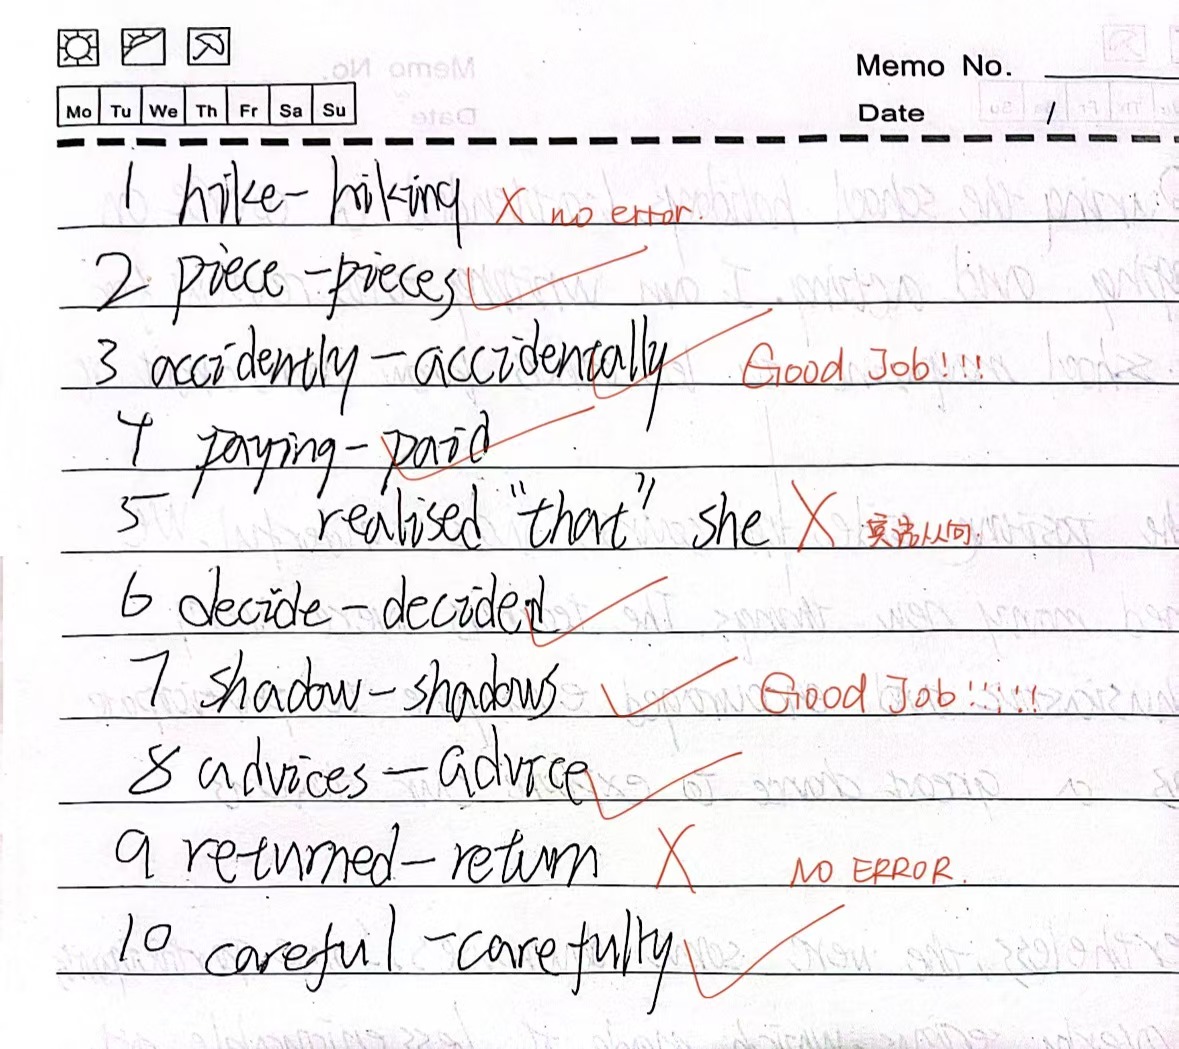 Memo No.
Mo Tu We Th Fr Sa Su
Date /
1 hike - hiking X no error.
2 piece - pieces
3 accidently - accidentally Good Job!!!
4 paying - paid
5 realised "that" she X 英语从句
6 decide - decided
7 shadow - shadows Good Job!!!!!
8 advices - advice
9 returned - return X NO ERROR.
10 careful - carefully